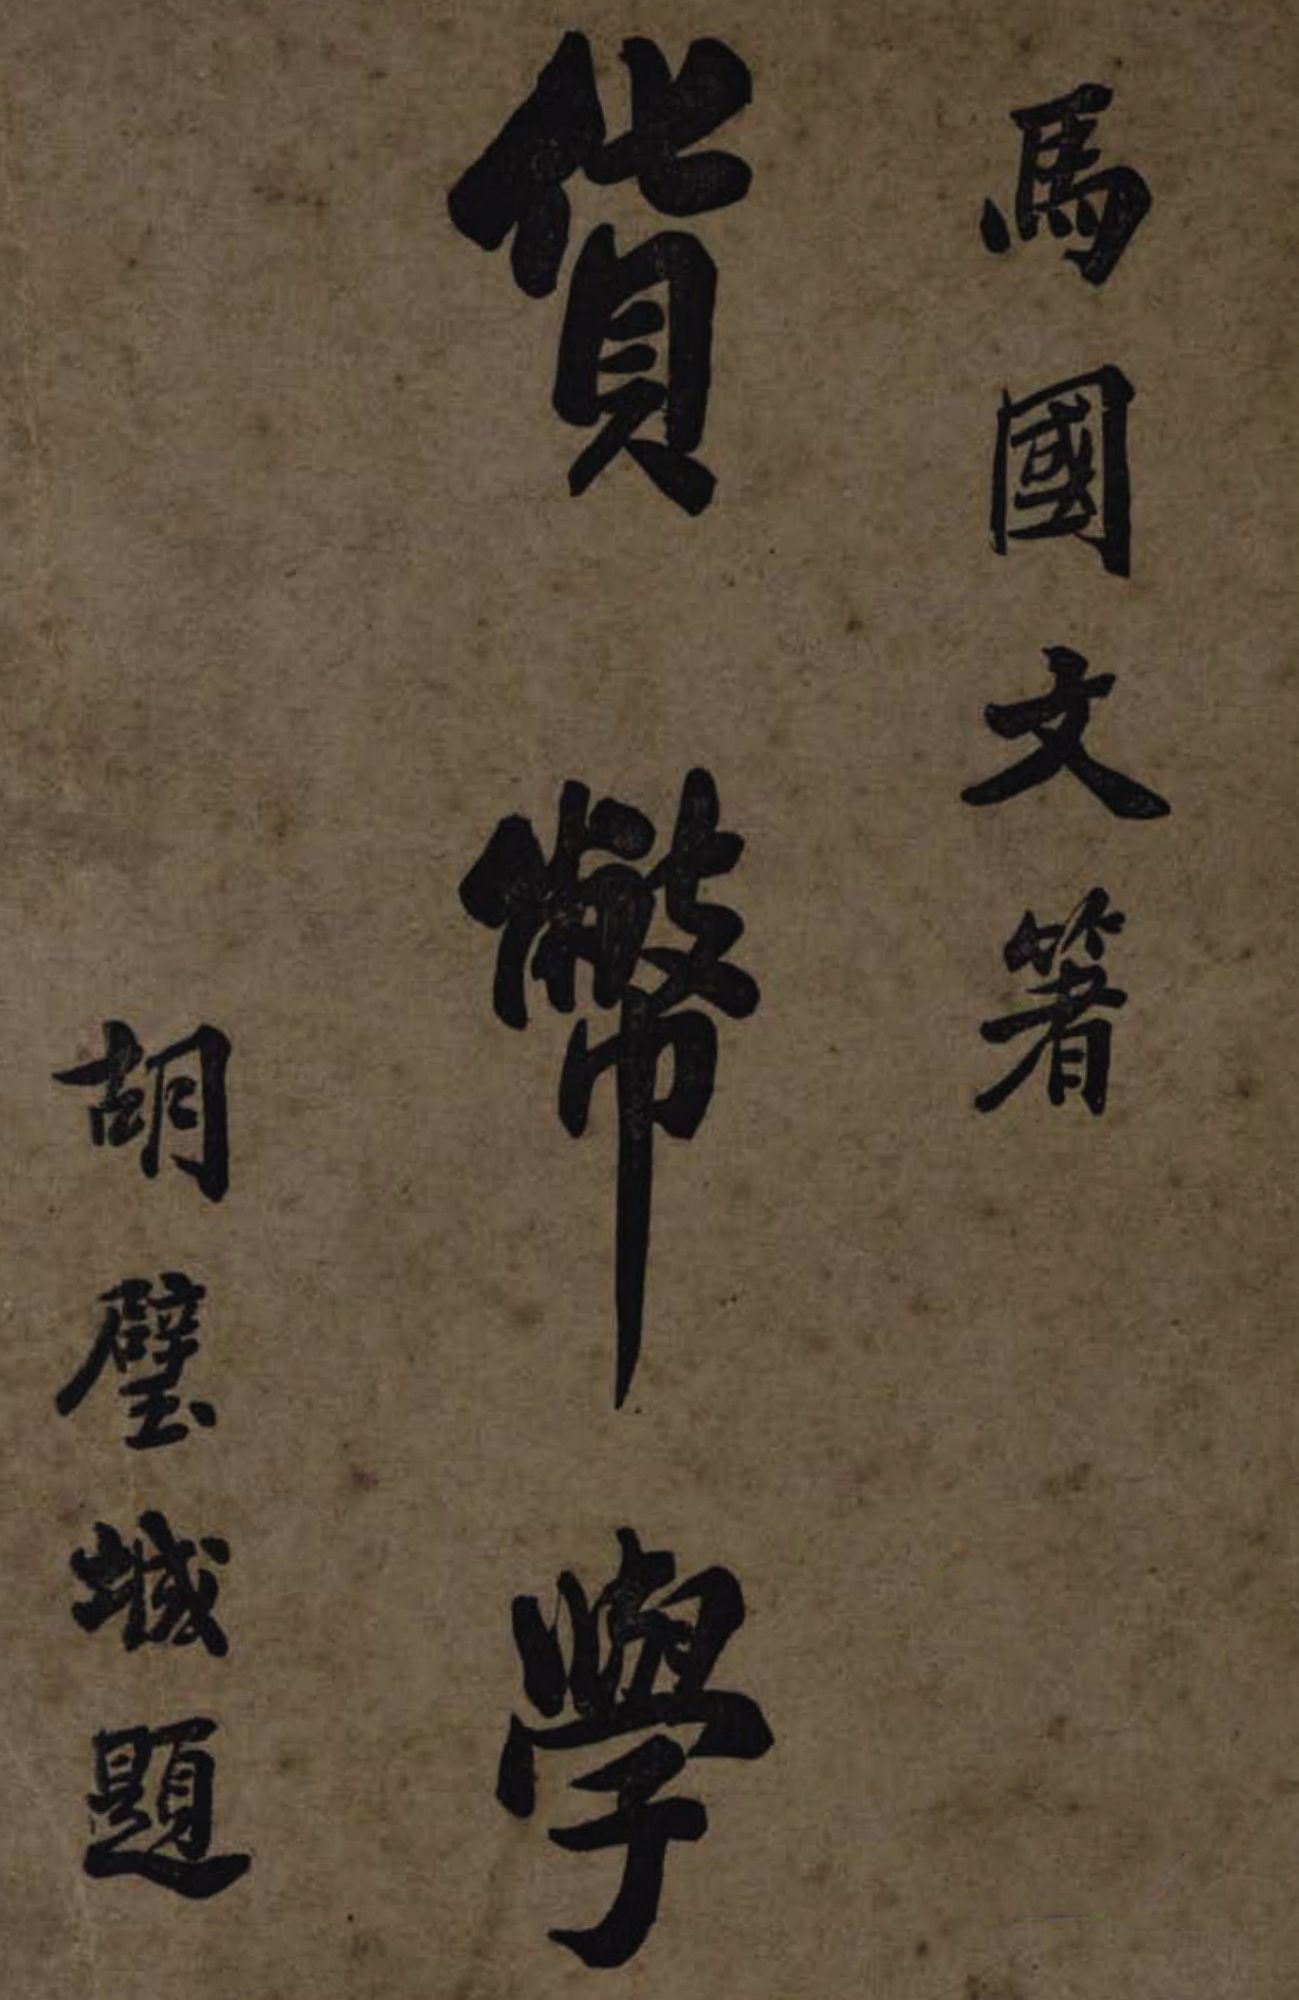 馬國文箸
貨幣學
胡璧城題